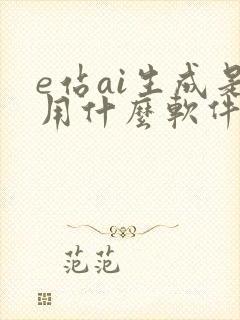 e佔ai生成是
用什麼軟件
范范